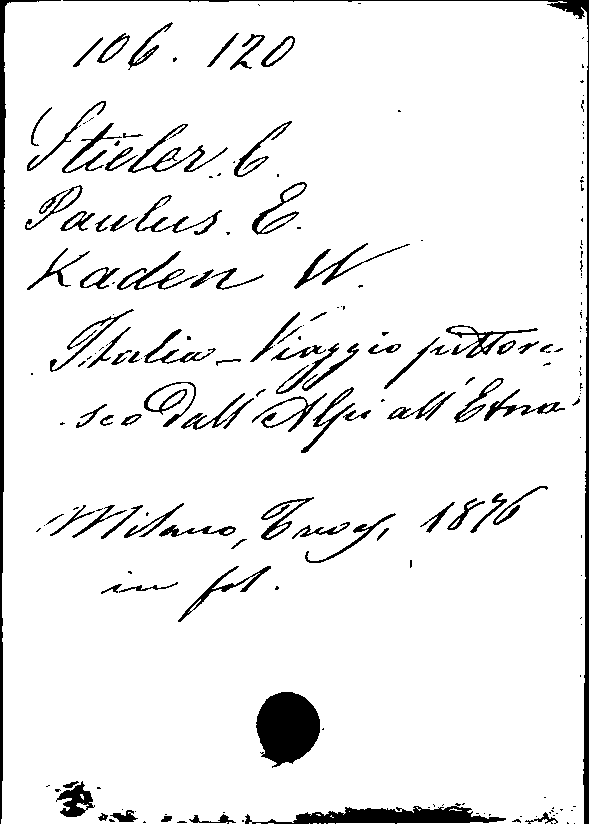 106. 120
Stieler. C.
Paulus. E.
Kaden W.
Italia - Viaggio pittore
sco dall'Alpi all'Etna
Milano, Trev, 1876
in fol.